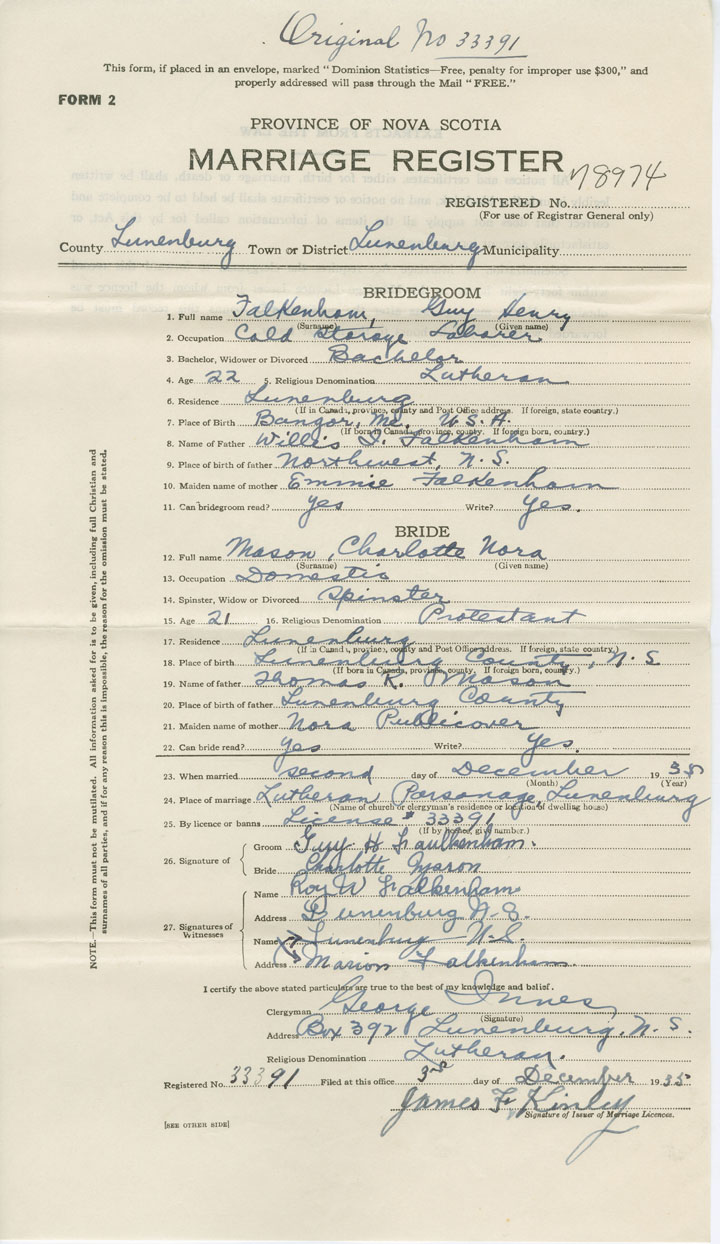 Original No 33391
This form, if placed in an envelope, marked "Dominion Statistics—Free, penalty for improper use $300," and
properly addressed will pass through the Mail "FREE."
FORM 2
PROVINCE OF NOVA SCOTIA
MARRIAGE REGISTER
78974
REGISTERED No.
(For use of Registrar General only)
County Lunenburg Town or District Lunenburg Municipality
BRIDEGROOM
1. Full name Falkenham, Guy Henry
(Surname) (Given name)
2. Occupation Cold Storage Laborer
3. Bachelor, Widower or Divorced Bachelor
4. Age 22 5. Religious Denomination Lutheran
6. Residence Lunenburg
(If in Canada, province, county and Post Office address. If foreign, state country.)
7. Place of Birth Bangor, Me. U.S.A.
(If born in Canada, province, county. If foreign born, country.)
8. Name of Father Willis I. Falkenham
9. Place of birth of father Northwest, N.S.
10. Maiden name of mother Emmie Falkenham
11. Can bridegroom read? yes Write? Yes.
BRIDE
12. Full name Mason, Charlotte Nora
(Surname) (Given name)
13. Occupation Domestic
14. Spinster, Widow or Divorced Spinster
15. Age 21 16. Religious Denomination Protestant
17. Residence Lunenburg
(If in Canada, province, county and Post Office address. If foreign, state country.)
18. Place of birth Lunenburg County, N.S
(If born in Canada, province, county. If foreign born, country.)
19. Name of father Thomas R. Mason
20. Place of birth of father Lunenburg County
21. Maiden name of mother Nora Publicover
22. Can bride read? Yes Write? Yes.
23. When married second day of December 1935
(Month) (Year)
24. Place of marriage Lutheran Parsonage, Lunenburg
(Name of church or clergyman's residence or location of dwelling house)
25. By licence or banns License # 33391
(If by license, give number.)
26. Signature of
Groom Guy H Faulkenham.
Bride Charlotte Mason
27. Signatures of Witnesses
Name Roy W Falkenham
Address Lunenburg N.S.
Name Lunenburg N.S.
Address Marion Falkenham.
NOTE.—This form must not be mutilated. All information asked for is to be given, including full Christian and
surnames of all parties, and if for any reason this is impossible, the reason for the omission must be stated.
I certify the above stated particulars are true to the best of my knowledge and belief.
Clergyman George Innes
(Signature)
Address Box 392 Lunenburg, N.S.
Religious Denomination Lutheran.
Registered No. 33391 Filed at this office 3rd day of December 1935
James F. Kinley
Signature of Issuer of Marriage Licences.
[SEE OTHER SIDE]